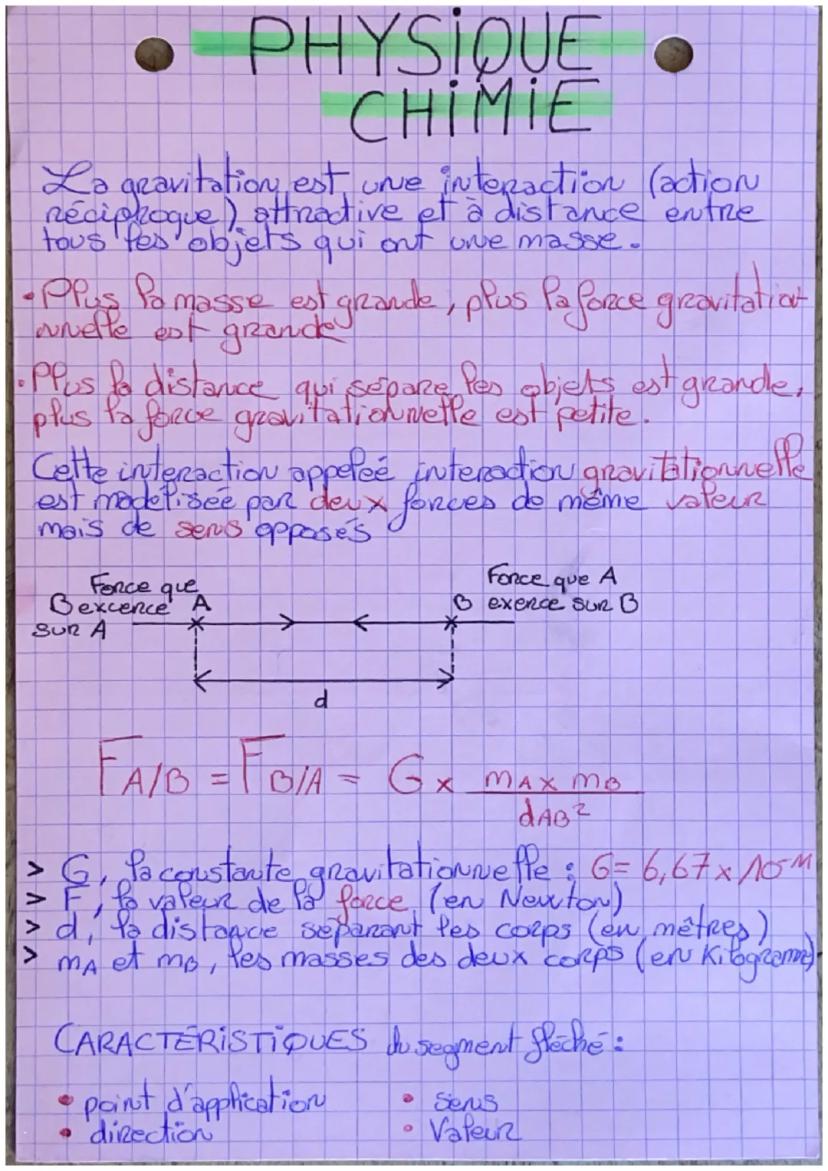 PHYSIQUE
CHIMIE
La gravitation est une interaction (action
réciproque) attractive et à distance entre
tous les objets qui ont une masse.
• Plus la masse est grande, plus la force gravitatiot
nnelle est grande
• Plus la distance qui sépare les objets est grande,
plus la force gravitationnelle est petite.
Cette interaction appeleé interaction gravitationnelle
est modelisée par deux forces de même valeur
mais de sens opposés
Force que
B excerce A
sur A
Force que A
B exerce sur B
d
FA/B = FB/A = G x mA x mB
dAB²
> G, la constante gravitationnelle : G= 6,67 x 10-11
> F, la valeur de la force (en Newton)
> d, la distance séparant les corps (en mètres)
> mA et mB, les masses des deux corps (en Kilogramme)
CARACTÉRISTIQUES du segment fléché :
• point d'application • Sens
• direction • Valeur